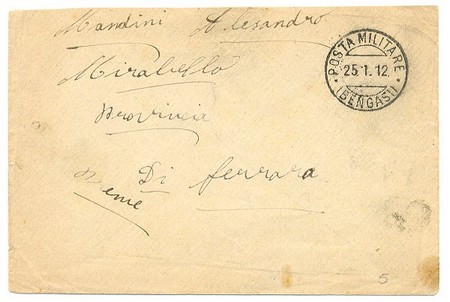 Mandini Alesandro
Mirabello
Provincia
Di ferrara
POSTA MILITARE
25.1.12.
(BENGASI)
5